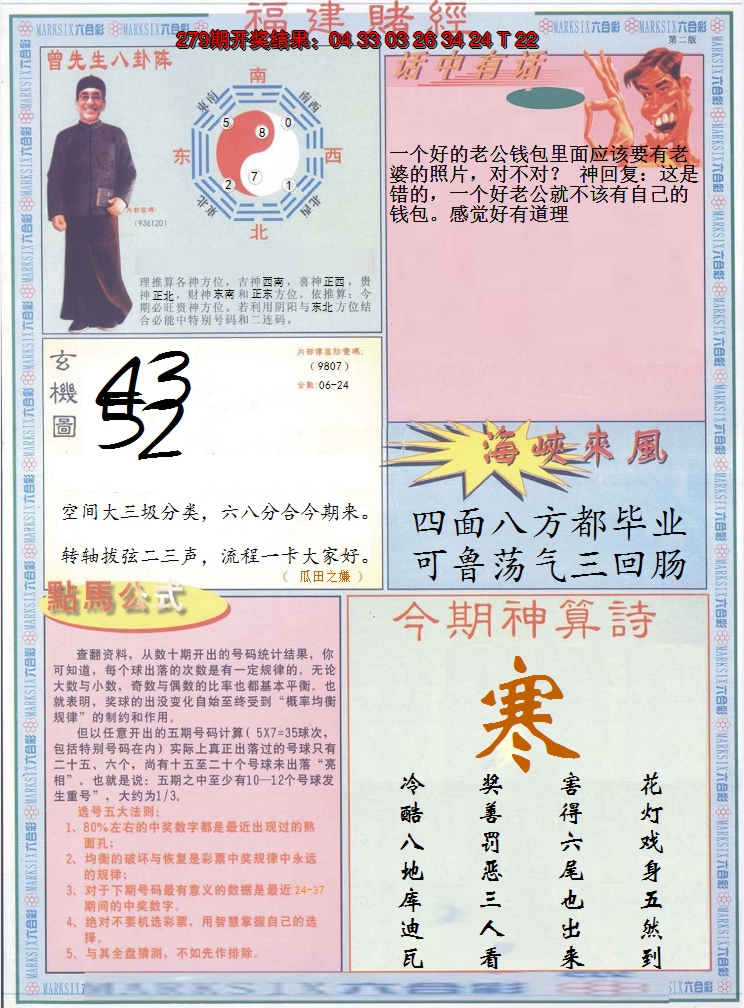 福建賭經
279期开奖结果：04 33 03 26 34 24 T 22
MARKSIX六合彩 MARKSIX六合彩 MARKSIX六合彩 MARKSIX六合彩
第二版
曾先生八卦阵
南
东南
西南
5
8
0
东
西
2
7
1
东北
西北
北
内部密碼：
（936120）
理推算各神方位，吉神西南，喜神正西，贵
神正北，财神东南和正东方位。依推算：今
期必旺贵神方位。若利用阴阳与东北方位结
合必能中特别号码和二连码。
话中有话
一个好的老公钱包里面应该要有老
婆的照片，对不对？ 神回复：这是
错的，一个好老公就不该有自己的
钱包。感觉好有道理
玄機圖
43
52
（9807）
合數：06-24
空间大三圾分类，六八分合今期来。
转轴拔弦二三声，流程一卡大家好。
（ 瓜田之嫌 ）
海峽來風
四面八方都毕业
可鲁荡气三回肠
點馬公式
查翻资料，从数十期开出的号码统计结果，你
可知道，每个球出落的次数是有一定规律的。无论
大数与小数，奇数与偶数的比率也都基本平衡。也
就表明，奖球的出没变化自始至终受到“概率均衡
规律”的制约和作用。
但以任意开出的五期号码计算（5X7=35球次，
包括特别号码在内）实际上真正出落过的号球只有
二十五、六个，尚有十五至二十个号球未出落“亮
相”。也就是说：五期之中至少有10—12个号球发
生重号”，大约为1/3。
选号五大法则：
1、80%左右的中奖数字都是最近出现过的熟
面孔；
2、均衡的破坏与恢复是彩票中奖规律中永远
的规律；
3、对于下期号码最有意义的数据是最近24-37
期间的中奖数字。
4、绝对不要机选彩票，用智慧掌握自己的选
择。
5、与其全盘猜测，不如先作排除。
今期神算詩
寒
花灯戏身五然到
害得六尾也出来
奖善罚恶三人看
冷酷八地库迪瓦